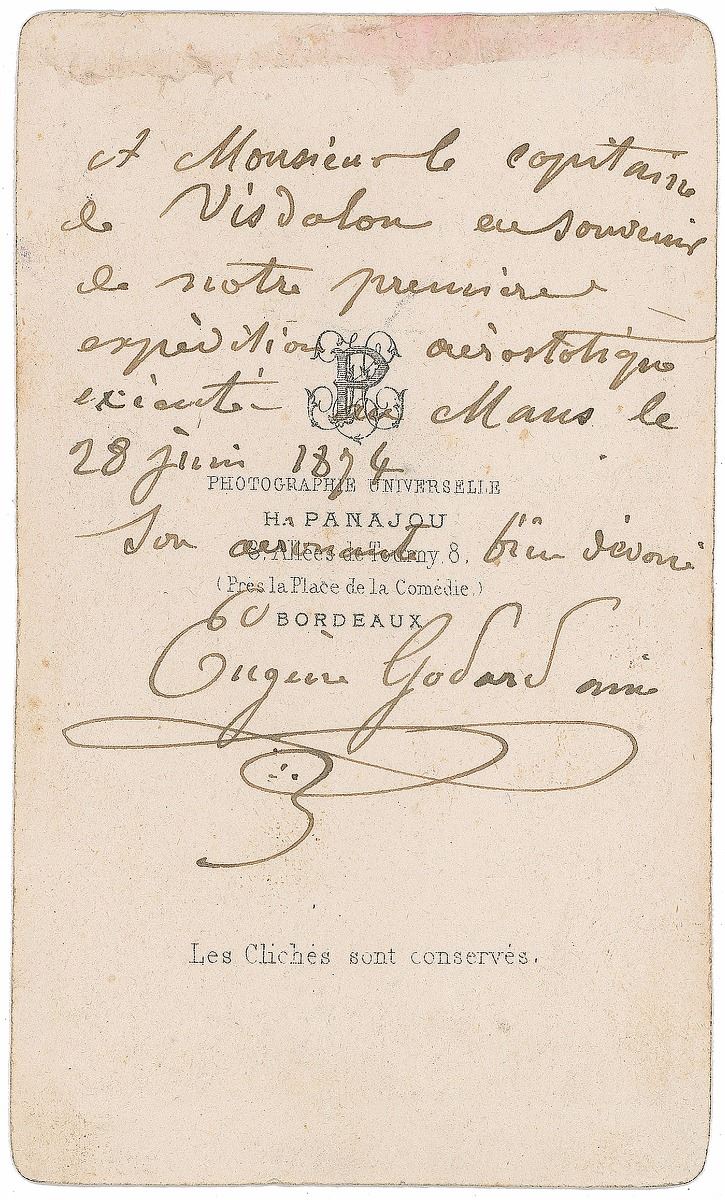 A Monsieur le capitaine
de Visdalon en souvenir
de notre première
expédition aérostatique
exécuté au Mans le
28 juin 1874
PHOTOGRAPHIE UNIVERSELLE
H. PANAJOU
Son aéronaute bien dévoué
8, Allées de Tourny, 8,
(Près la Place de la Comédie.)
BORDEAUX
Eugène Godard ainé
Les Clichés sont conservés.